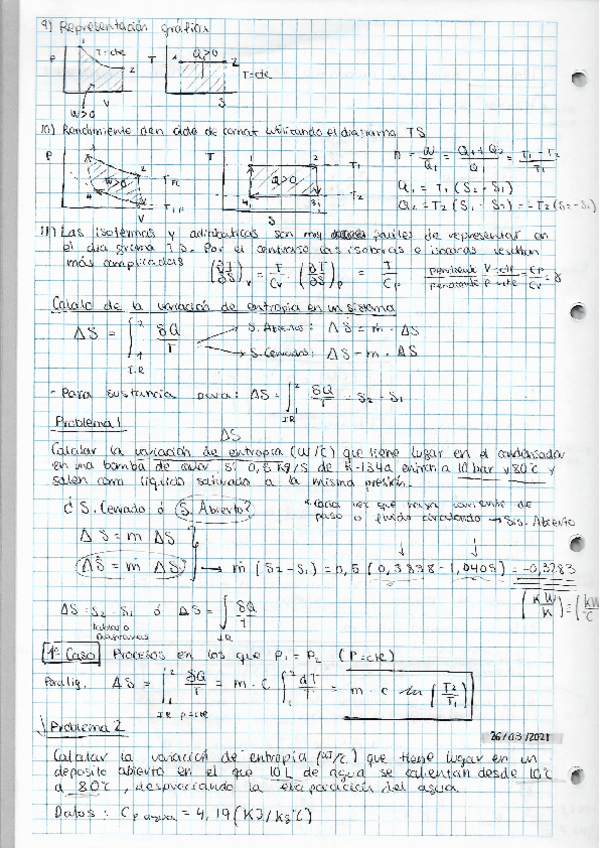 9) Representación gráfica
P T=cte 2 V W>0
T 1 Q>0 2 T=cte S
10) Rendimiento den ciclo de carnot utilizando el diagrama TS
P 1 W>0 2 3 4 V
T 1 2 T1 Q>0 T2 4 3 S
n = W/Q1 = Q1+Q2/Q1 = T1-T2/T1
Q1 = T1 (S2-S1)
Q2 = T2 (S1-S2) = -T2 (S2-S1)
11) Las isotermas y adiabaticas son muy faciles de representar en
el diagrama T S. Por el contrario las isobaras e isocoras resultan
más complicadas (∂T/∂S)v = T/Cv . (∂T/∂S)p = T/Cp pendiente V=cte/pendiente P=cte = CP/CV = γ
Calculo de la variación de entropia en un sistema
ΔS = ∫ δQ/T
S. Abiertos: ΔṠ = ṁ · ΔS
S. Cerrados: ΔS = m · ΔS
- Para sustancia pura: ΔS = ∫ δQ/T = S2 - S1
Problema 1
ΔS
Calcular la variación de entropia (kW/ºC) que tiene lugar en el condensador
en una bomba de calor si 0,5 kg/s de R-134a entran a 10 bar y 80ºC y
salen como liquido saturado a la misma presión.
¿ S. Cerrado ó S. Abierto?
corriente de
paso o fluido circulando → Sis. Abierto
ΔS = m ΔS
ΔṠ = ṁ ΔS → ṁ (S2-S1) = 0,5 (0,3838 - 1,0405) = -0,3283
(kW/K) = (kW/ºC)
ΔS = S2 - S1 ó ΔS = ∫ δQ/T
Tablas o
Diagramas
1º Caso Procesos en los que P1 = P2 (P=cte)
Para liq. ΔS = ∫ δQ/T = m · C ∫ dT/T = m · c ln (T2/T1)
Problema 2
26/03/2021
Calcular la variación de entropia (kJ/ºC) que tiene lugar en un
deposito abierto en el que 10L de agua se calientan desde 10ºC
a 80ºC, despreciando la evaporación del agua.
Datos: Cp agua = 4,19 (KJ/kgºC)